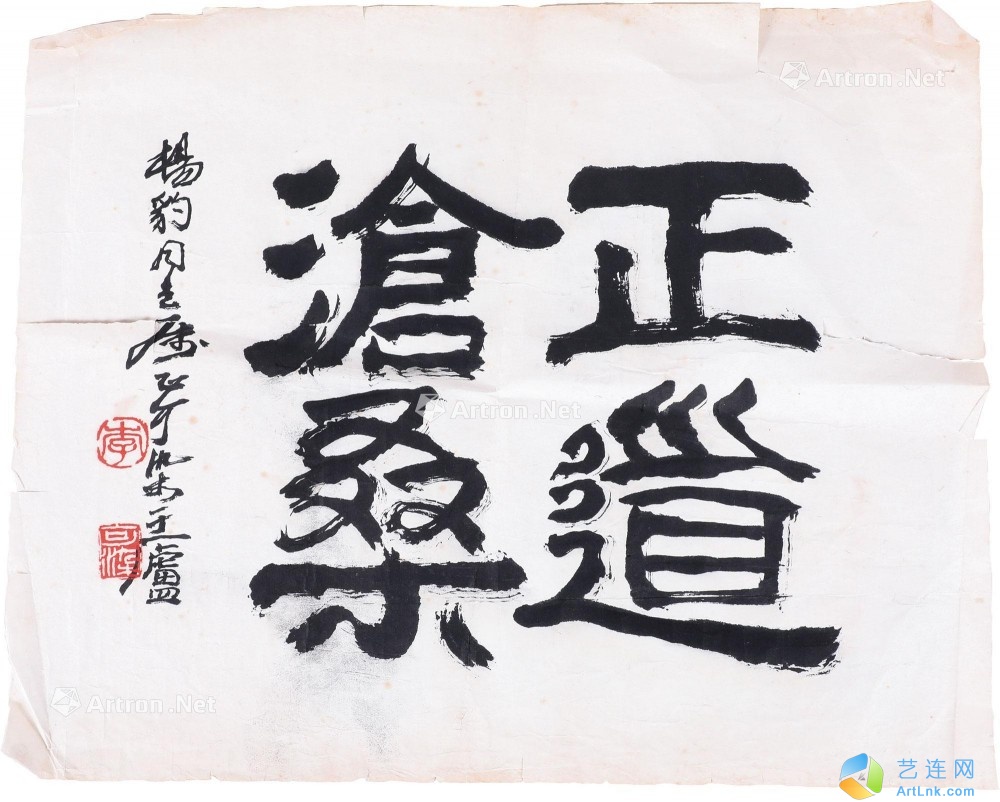 正道
滄桑
楊豹同志属
李
Artron.Net
Artron.Net
Artron.Net
艺连网
ArtLnk.com